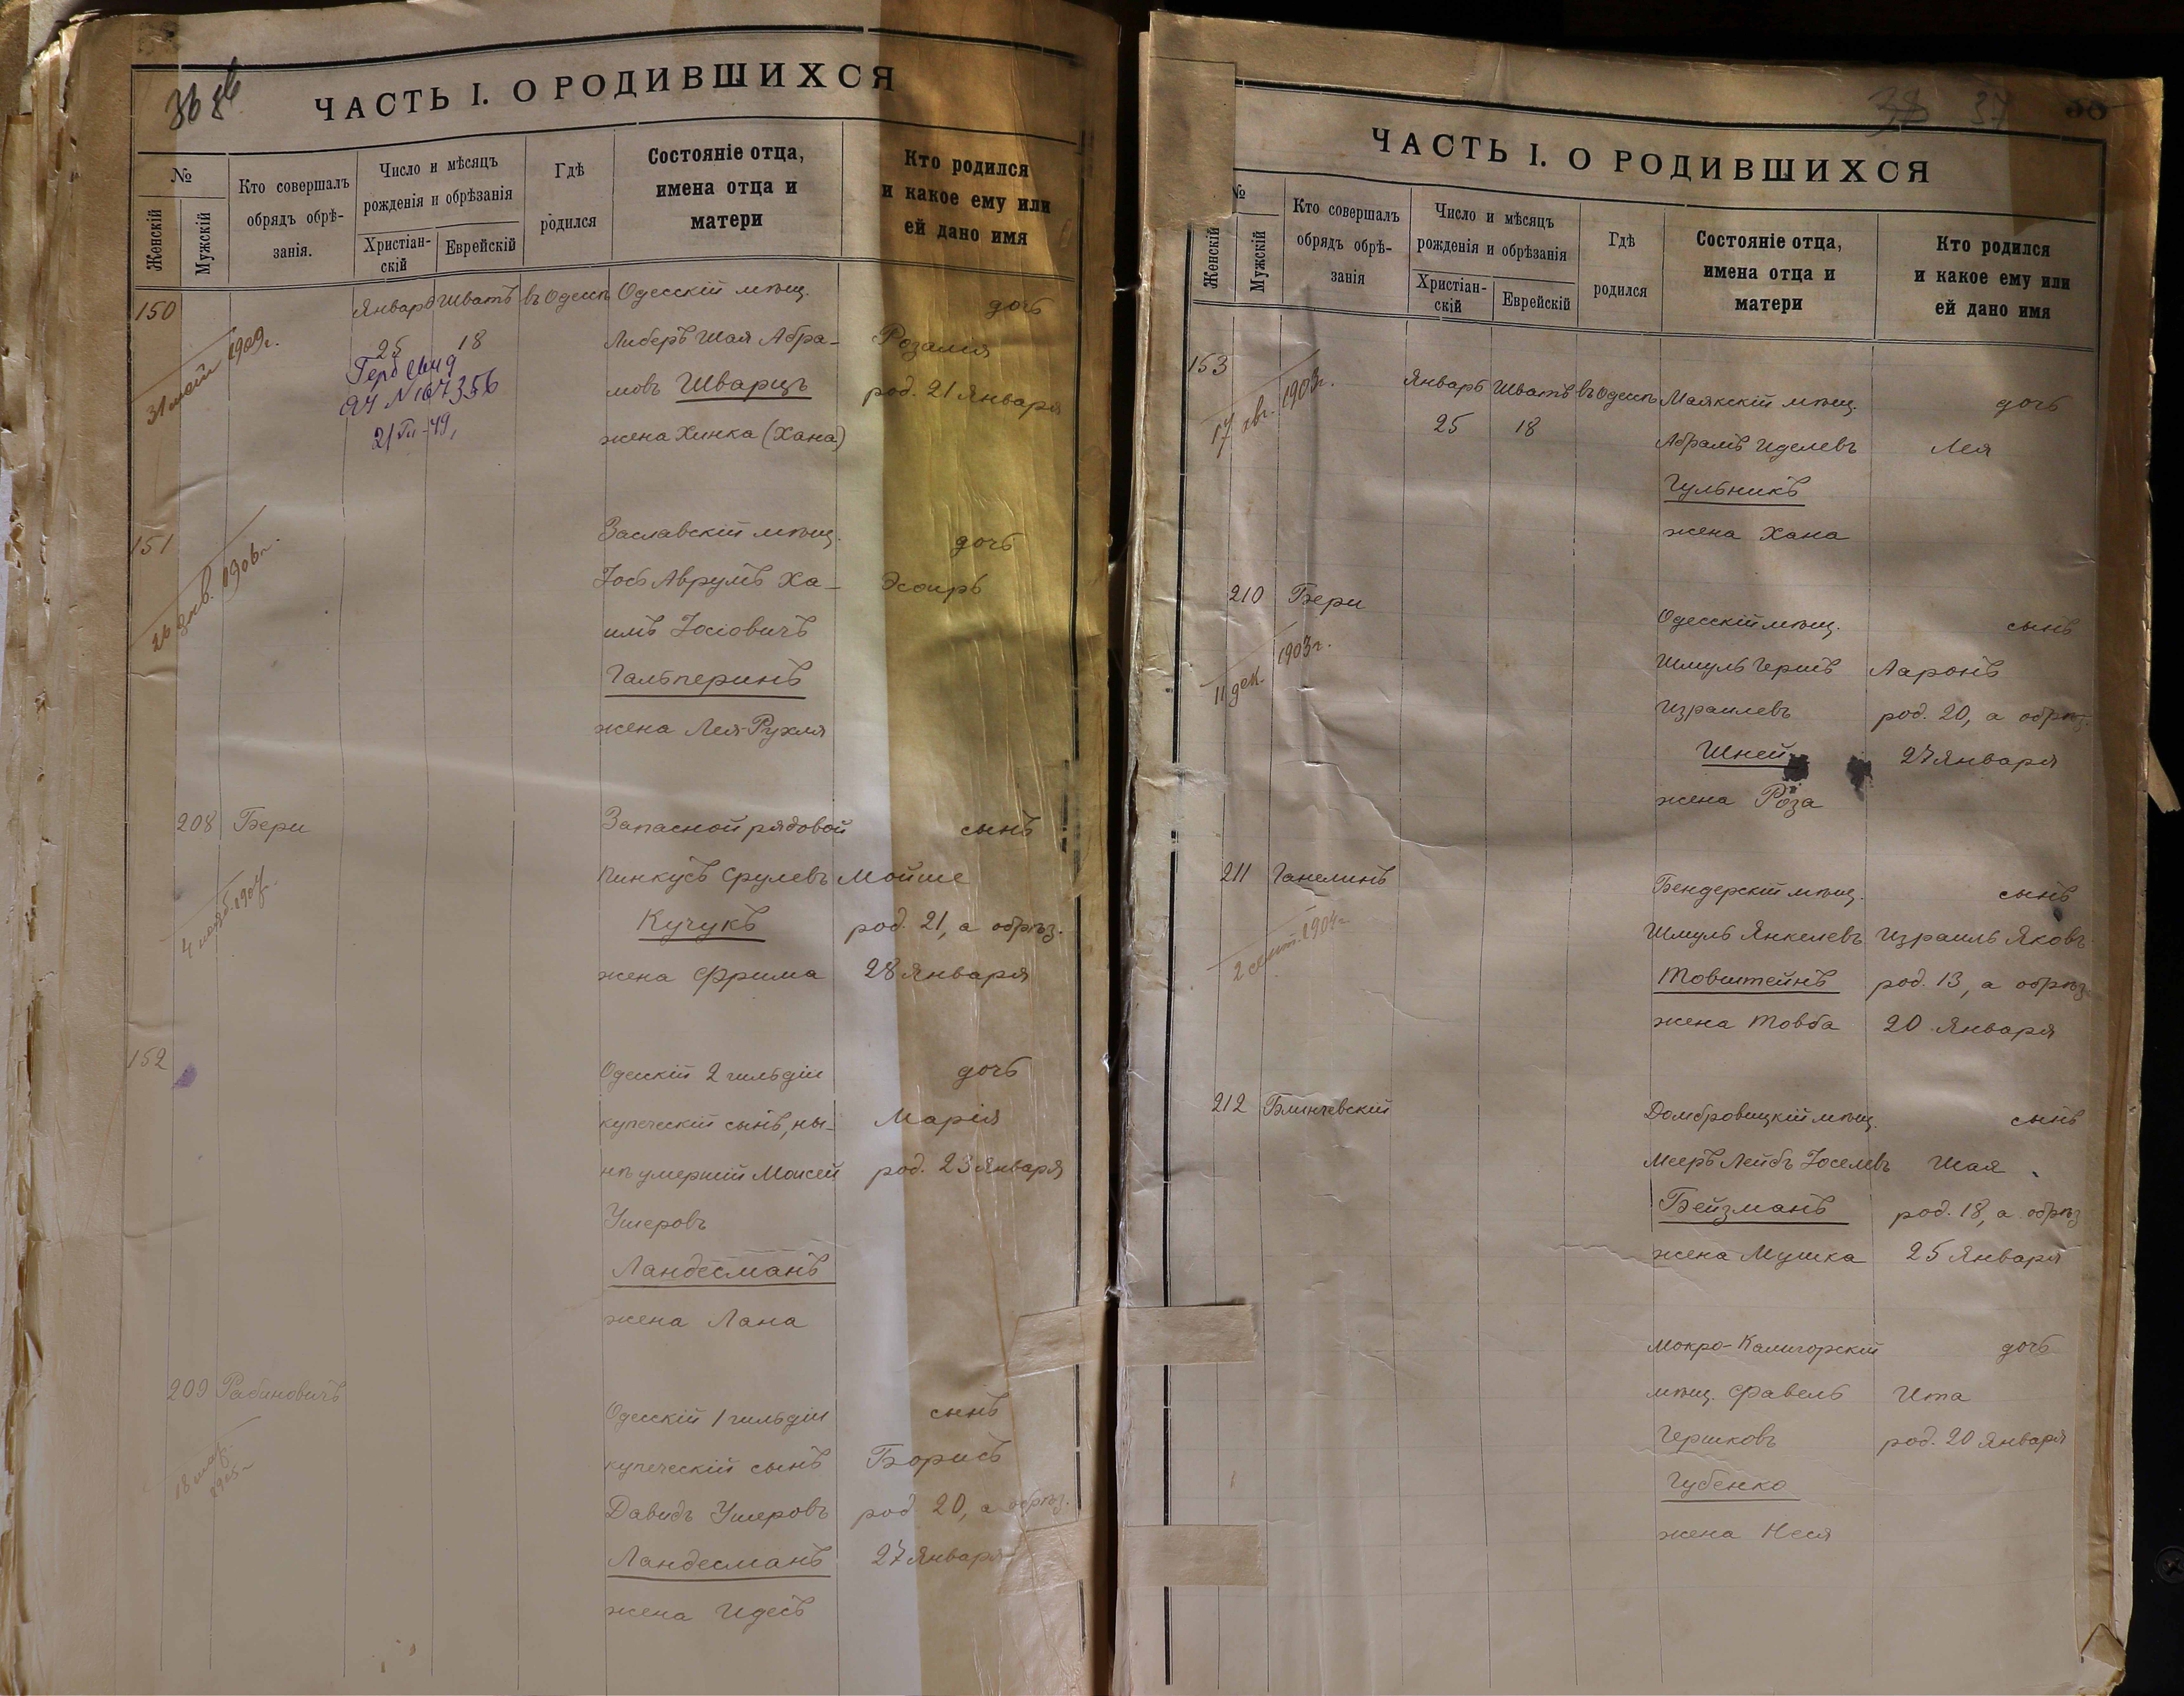 ЧАСТЬ I. О РОДИВШИХСЯ
№
Женскій
Мужскій
Кто совершалъ
обрядъ обрѣ-
занія.
Число и мѣсяцъ
рожденія и обрѣзанія
Христіан-
скій
Еврейскій
Гдѣ
родился
Состояніе отца,
имена отца и
матери
Кто родился
и какое ему или
ей дано имя
150 Январь Шватъ въ Одессѣ Одесскій мѣщ. дочь
31 1909г. 25 18 Либеръ Шая Абра- Розалія
мовъ Шварцъ род. 21 Января
N 167356
жена Хинка (Хана)
151 Заславскій мѣщ. дочь
Іось Аврумъ Ха- Эсѳирь
26 1906г. имъ Іосіовичъ
Гальперинъ
жена Лея-Рухля
208 Бери Запасной рядовой сынъ
Пинкусъ Срулевъ Мойше
4 нояб. 1907 Кучукъ род. 21, а обрѣз.
жена Фрима 28 Января
152 Одесскій 2 гильдіи дочь
купеческій сынъ, ны- Марія
нѣ умершій Моисей род. 23 Января
Ушеровъ
Ландесманъ
жена Лана
209 Рабиновичъ Одесскій 1 гильдіи сынъ
купеческій сынъ Борисъ
18 Давидъ Ушеровъ род. 20, а обрѣз.
Ландесманъ 27 Января
жена Идесъ
38 37
ЧАСТЬ I. О РОДИВШИХСЯ
№
Женскій
Мужскій
Кто совершалъ
обрядъ обрѣ-
занія
Число и мѣсяцъ
рожденія и обрѣзанія
Христіан-
скій
Еврейскій
Гдѣ
родился
Состояніе отца,
имена отца и
матери
Кто родился
и какое ему или
ей дано имя
153 Январь Шватъ въ Одессѣ Маякскій мѣщ. дочь
17 авг. 1903г. 25 18 Абрамъ Иделевъ Лея
Гульникъ
жена Хана
210 Бери Одесскій мѣщ. сынъ
11 дек. 1903г. Шмуль Гершъ Ааронъ
Израилевъ род. 20, а обрѣз.
27 Января
жена Роза
211 Ганелинъ Бендерскій мѣщ. сынъ
2 сент. 1904г. Шмуль Янкелевъ Израиль Яковъ
Товштейнъ род. 13, а обрѣз.
жена Товба 20 Января
212 Блинчевскій Домбровицкій мѣщ. сынъ
Мееръ Лейбъ Іоселевъ Шая
Бейзманъ род. 18, а обрѣз
жена Мушка 25 Января
Мокро-Калигорскій дочь
мѣщ. Фавель Ита
Гершковъ род. 20 Января
Губенко
жена Неся